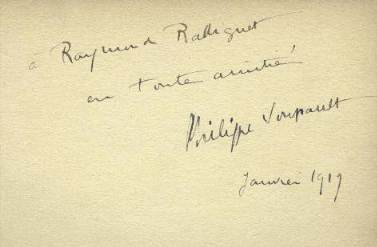 à Raymond Radiguet
en toute amitié
Philippe Soupault
Janvier 1919